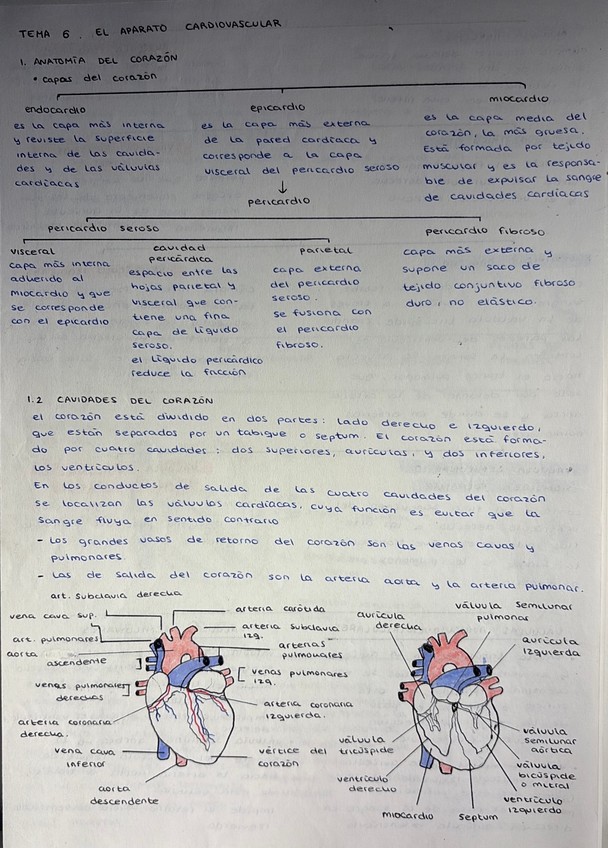 TEMA 6. EL APARATO CARDIOVASCULAR
1. ANATOMÍA DEL CORAZÓN
• capas del corazón
endocardio
es la capa más interna
y reviste la superficie
interna de las cavida-
des y de las válvulas
cardíacas
epicardio
es la capa más externa
de la pared cardíaca y
corresponde a la capa
visceral del pericardio seroso
↓
pericardio
miocardio
es la capa media del
corazón, la más gruesa.
Está formada por tejido
muscular y es la responsa-
ble de expulsar la sangre
de cavidades cardíacas
pericardio seroso
pericardio fibroso
visceral
capa más interna
adherido al
miocardio y que
se corresponde
con el epicardio
cavidad
pericárdica
espacio entre las
hojas parietal y
visceral que con-
tiene una fina
capa de líquido
seroso.
el líquido pericárdico
reduce la fricción
parietal
capa externa
del pericardio
seroso.
se fusiona con
el pericardio
fibroso.
capa más externa y
supone un saco de
tejido conjuntivo fibroso
duro, no elástico.
1.2 CAVIDADES DEL CORAZÓN
el corazón está dividido en dos partes: lado derecho e izquierdo,
que están separados por un tabique o septum. El corazón está forma-
do por cuatro cavidades: dos superiores, aurículas, y dos inferiores,
los ventrículos.
En los conductos de salida de las cuatro cavidades del corazón
se localizan las válvulas cardíacas, cuya función es evitar que la
sangre fluya en sentido contrario
- Los grandes vasos de retorno del corazón son las venas cavas y
pulmonares.
- Las de salida del corazón son la arteria aorta y la arteria pulmonar.
art. subclavia derecha
vena cava sup.
art. pulmonares
aorta
ascendente
venas pulmonares
derechas
arteria coronaria
derecha.
vena cava
inferior
aorta
descendente
arteria carótida
arteria subclavia
izq.
arterias
pulmonares
venas pulmonares
izq.
arteria coronaria
izquierda.
vértice del
corazón
aurícula
derecha
válvula semilunar
pulmonar
aurícula
izquierda
válvula
tricúspide
ventrículo
derecho
miocardio
septum
válvula
semilunar
aórtica
válvula
bicúspide
o mitral
ventrículo
izquierdo